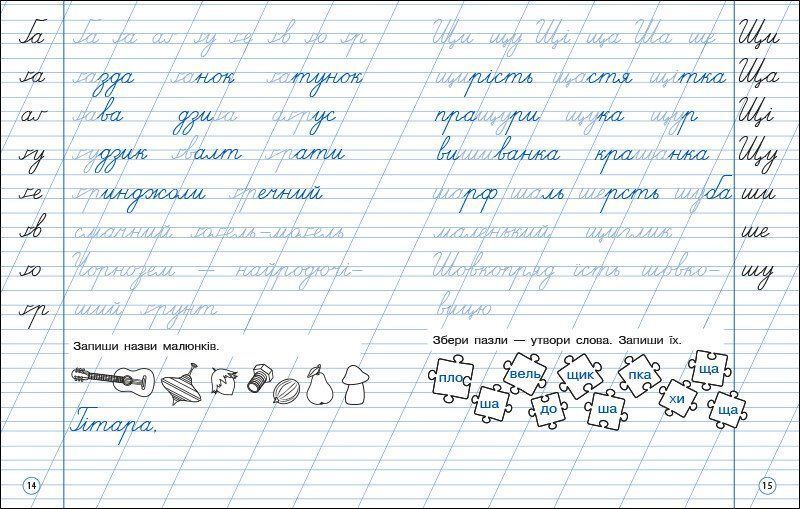 Ґа Ґа ґа аґ ґу ґе ґв ґо ґр
ґа ґазда ґанок ґатунок
аґ ґава дзиґа аґрус
ґу ґудзик ґвалт ґрати
ґе ґринджоли ґречний
ґв смачний ґоґель-моґель
ґо Чорнозем — найродючі-
ґр ший ґрунт
Запиши назви малюнків.
Гітара,
14
Щи щу Щі ща Ша ше Щи
щирість щастя щітка Ща
пращури щука щур Щі
вишиванка крашанка Щу
шарф шаль шерсть шуба ши
маленький щиглик ше
Шовкопряд їсть шовко- шу
вицю
Збери пазли — утвори слова. Запиши їх.
пло вель щик пка ща
ша до ша хи ща
15